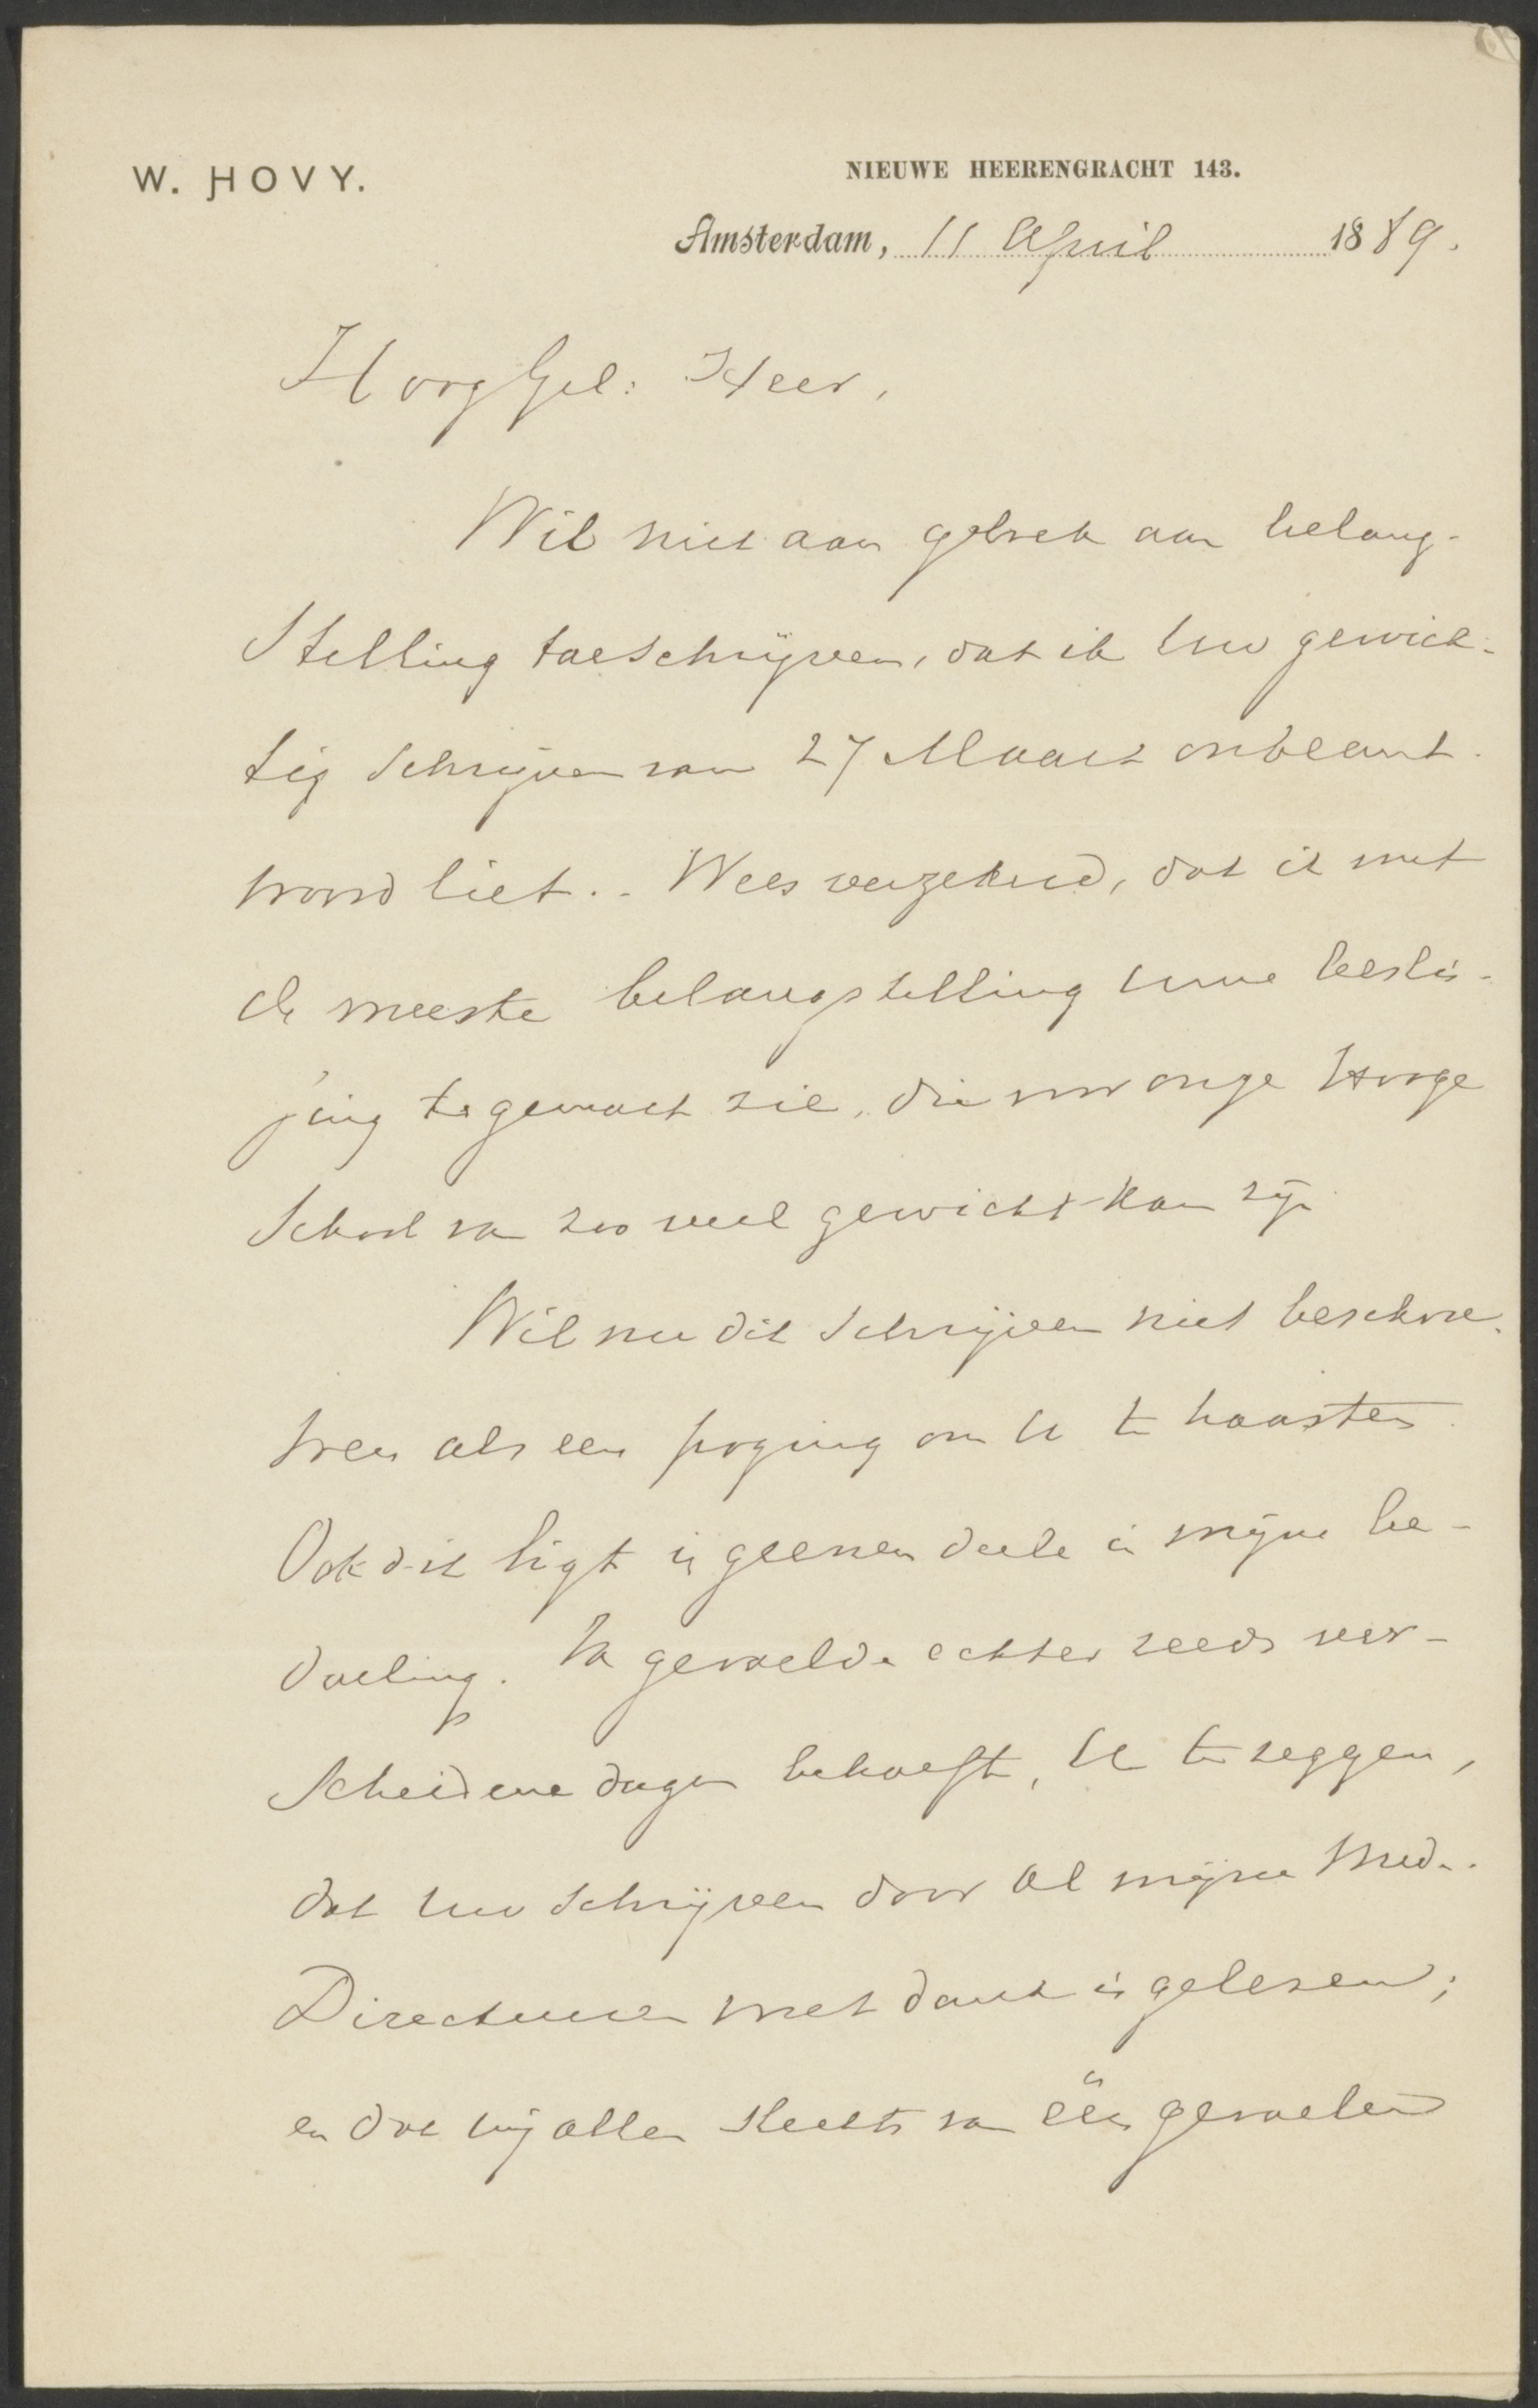 W. HOVY.
NIEUWE HEERENGRACHT 143.
Amsterdam, 11 April 1889.
HoogGel: Heer,
Wil niet aan gebrek aan belang-
stelling toeschrijven, dat ik Uw gewich-
tig schrijven van 27 Maart onbeant-
woord liet. - Wees verzekerd, dat ik met
de meeste belangstelling Uwe beslis-
sing tegemoet zie, die voor onze Hooge
School van zoo veel gewicht kan zijn
Wil nu dit schrijven niet beschou-
wen als een poging om U te haasten.
Ook dit ligt in geenen deele in mijne be-
doeling. Ik gevoelde echter reeds ver-
scheidene dagen behoefte, U te zeggen,
dat Uw schrijven door al mijne Mede-
Directeuren met dank is gelezen;
en dat wij allen slechts van één gevoelen